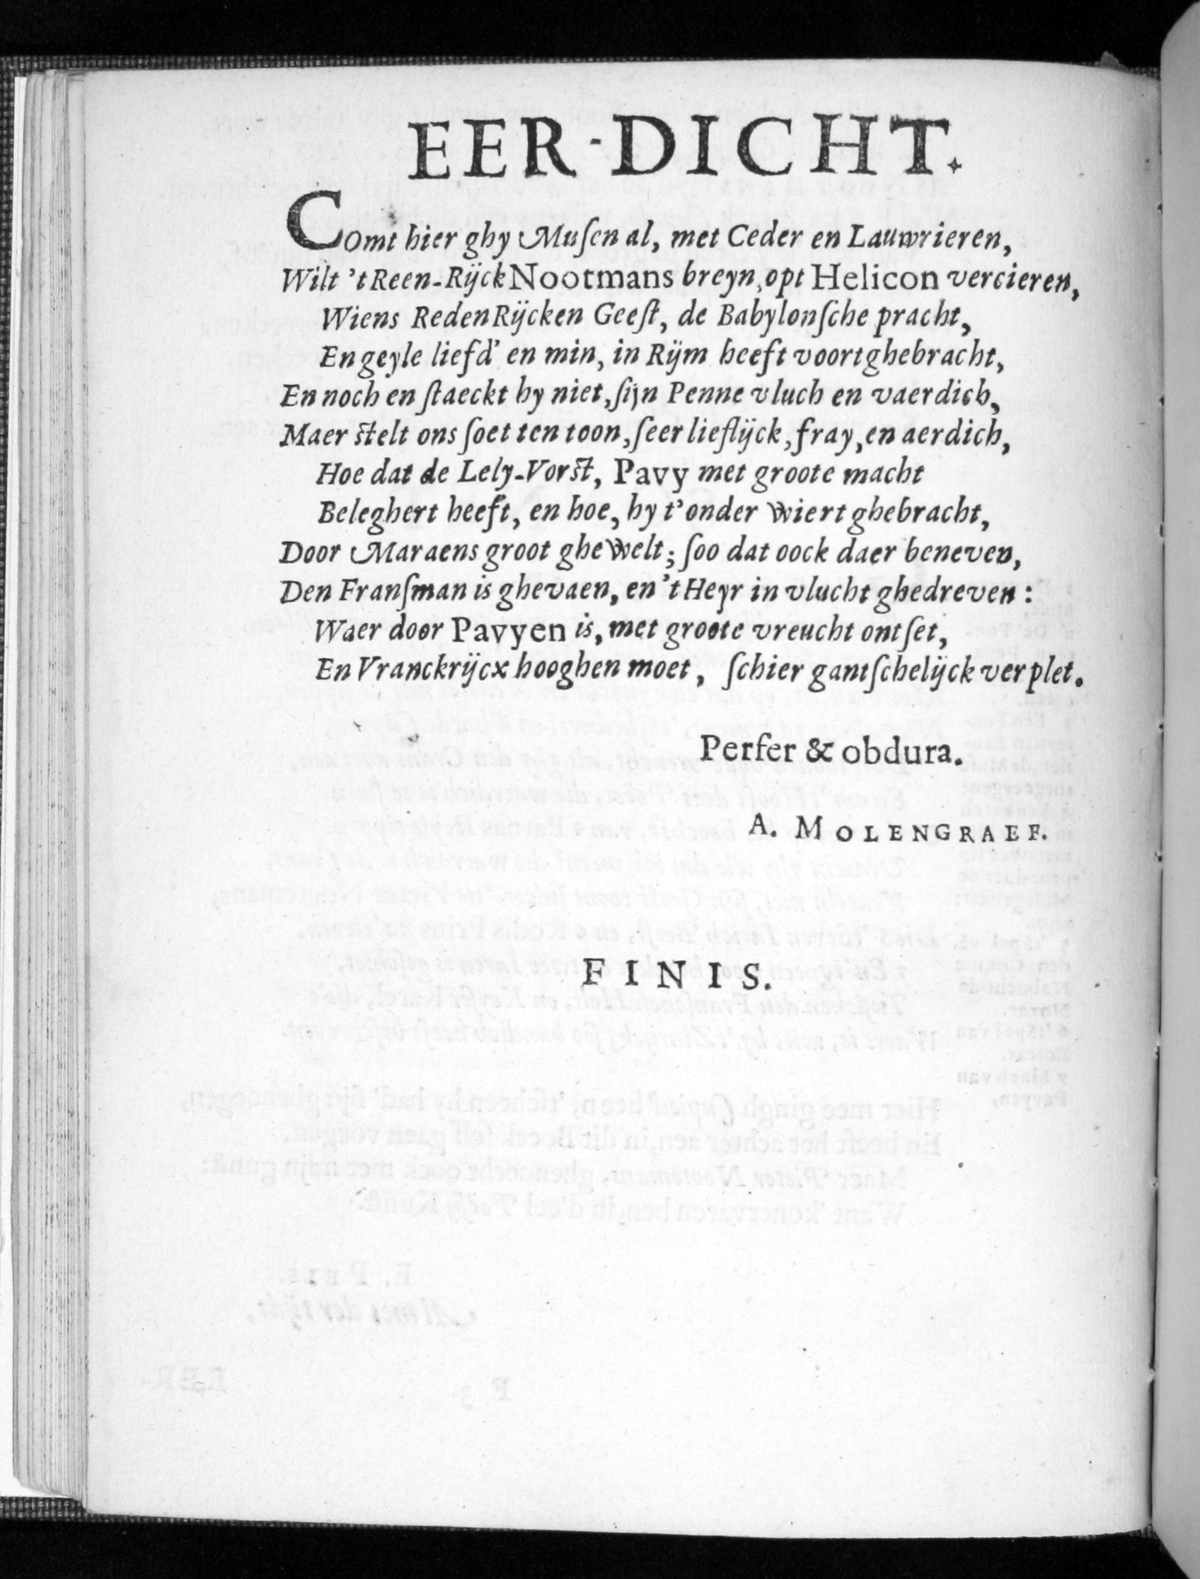 EER-DICHT.
Comt hier ghy Muſen al, met Ceder en Lauwrieren,
Wilt 't Reen-Rijck Nootmans breyn, opt Helicon vercieren,
Wiens RedenRijcken Geeſt, de Babylonſche pracht,
En geyle liefd' en min, in Rijm heeft voortghebracht,
En noch en ſtaeckt hy niet, ſijn Penne vluch en vaerdich,
Maer ſtelt ons ſoet ten toon, ſeer lieflijck, fray, en aerdich,
Hoe dat de Lely-Vorſt, Pavy met groote macht
Beleghert heeft, en hoe, hy t'onder wiert ghebracht,
Door Maraens groot ghewelt; ſoo dat oock daer beneven,
Den Franſman is ghevaen, en 't Heyr in vlucht ghedreven:
Waer door Pavyen is, met groote vreucht ontſet,
En Vranckrijcx hooghen moet, ſchier gantſchelijck verplet.
Perfer & obdura.
A. MOLENGRAEF.
FINIS.